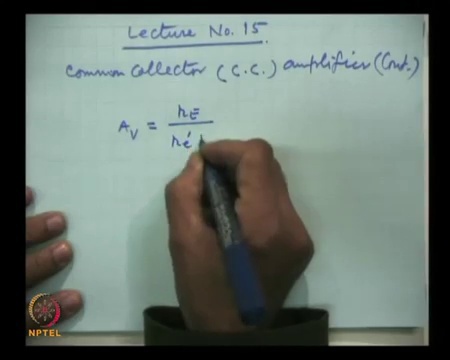 Lecture No. 15.
Common Collector (C.C.) amplifier (Cont.)
A_V = r_E / r_e'
NPTEL